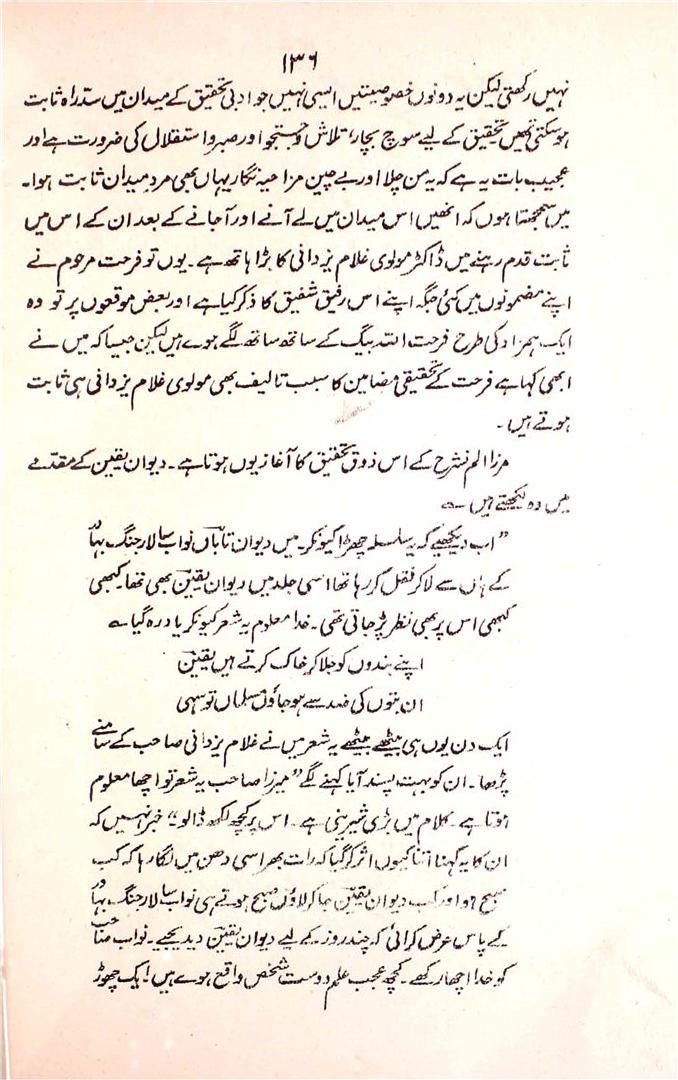 ۱۳۶
نہیں رکھتی لیکن یہ دونوں خصوصیتیں ایسی نہیں جو ادبی تحقیق کے میدان میں سدراہ ثابت
ہوسکتی تھیں تحقیق کے لیے سوچ بچار، تلاش و جستجو اور صبر و استقلال کی ضرورت ہے اور
عجیب بات یہ ہے کہ یہ من چلا اور بے چین مزاحیہ نگار یہاں بھی مرد میدان ثابت ہوا۔
میں سمجھتا ہوں کہ انھیں اس میدان میں لے آنے اور آجانے کے بعد ان کے اس میں
ثابت قدم رہنے میں ڈاکٹر مولوی غلام یزدانی کا بڑا ہاتھ ہے۔ یوں تو فرحت مرحوم نے
اپنے مضمونوں میں کئی جگہ اپنے اس رفیق شفیق کا ذکر کیا ہے اور بعض موقعوں پر تو وہ
ایک ہمزاد کی طرح فرحت اللہ بیگ کے ساتھ ساتھ لگے ہوے ہیں لیکن جیسا کہ میں نے
ابھی کہا ہے فرحت کے تحقیقی مضامین کا سبب تالیف بھی مولوی غلام یزدانی ہی ثابت
ہوتے ہیں۔
مرزا الم نشرح کے اس ذوق تحقیق کا آغاز یوں ہوتا ہے۔ دیوان یقین کے مقدمے
میں وہ لکھتے ہیں ؎
”اب دیکھیے کہ یہ سلسلہ چھڑا کیونکر۔ میں دیوان تاباں نواب سالار جنگ بہادر
کے ہاں سے لا کر نقل کر رہا تھا اسی جلد میں دیوان یقین بھی تھا۔ کبھی
کبھی اس پر بھی نظر پڑ جاتی تھی۔ خدا معلوم یہ شعر کیونکر یاد رہ گیا ؎
اپنے بندوں کو جلا کر خاک کرتے ہیں یقین
ان بتوں کی ضد سے ہو جاؤں مسلماں تو سہی
ایک دن یوں ہی بیٹھے بیٹھے یہ شعر میں نے غلام یزدانی صاحب کے سامنے
پڑھا۔ ان کو بہت پسند آیا کہنے لگے ”میرزا صاحب یہ شعر تو اچھا معلوم
ہوتا ہے۔ کلام میں بڑی شیرینی ہے۔ اس پر کچھ لکھ ڈالو۔“ خبر نہیں کہ
ان کا یہ کہنا اتنا کیوں اثر کر گیا کہ رات بھر اسی دھن میں لگا رہا کہ کب
صبح ہو اور کب دیوان یقین جا کر لاؤں صبح ہوتے ہی نواب سالار جنگ بہادر
کے پاس عرض کرائی کہ چند روز کے لیے دیوان یقین دیدیجیے۔ نواب صاحب
کو خدا اچھا رکھے۔ کچھ عجب علم دوست شخص واقع ہوے ہیں! ایک چھوڑ